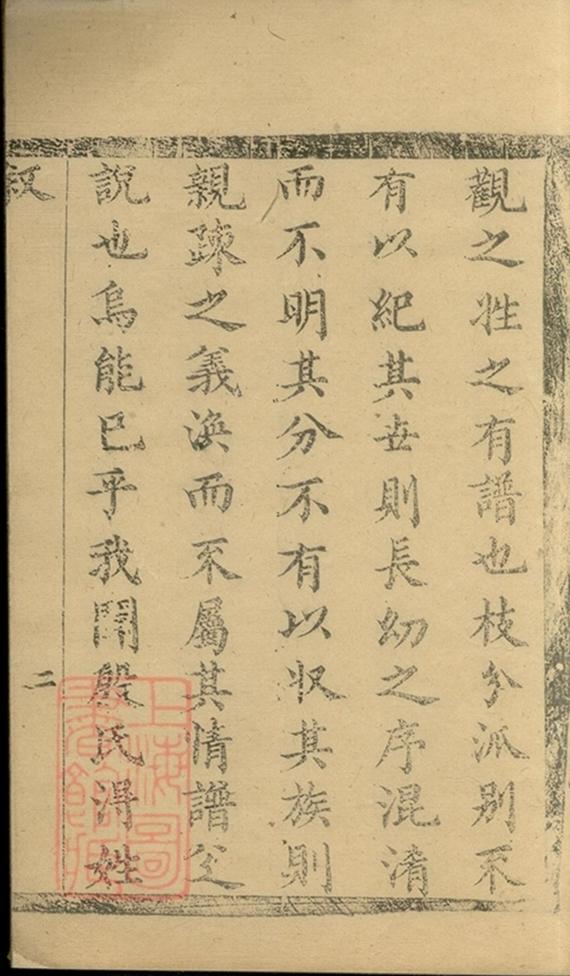 觀之姓之有譜也枝分派別不
有以紀其世則長幼之序混淆
而不明其分不有以収其族則
親疎之義渙而不屬其情譜之
說也烏能已乎我殷氏淂姓
叙
二
上海圖
書館藏